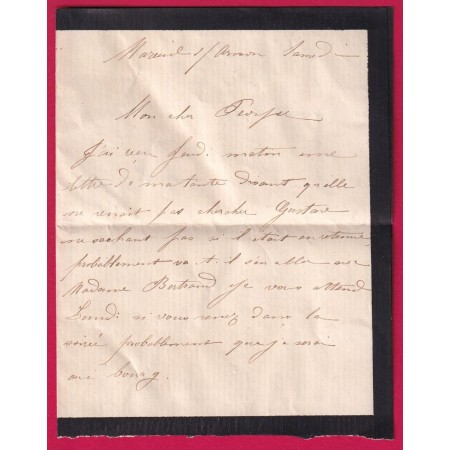 Mareuil s/ Arnon Samedi
Mon cher
J'ai reçu Jeudi matin une
lettre de ma tante disant qu'elle
ne venait pas chercher Gustave
ne sachant pas si il était en retenue
probablement va-t-il s'en aller avec
Madame Bertrand je vous attend
Lundi si vous venez dans la
soirée probablement que je serai
au bourg.